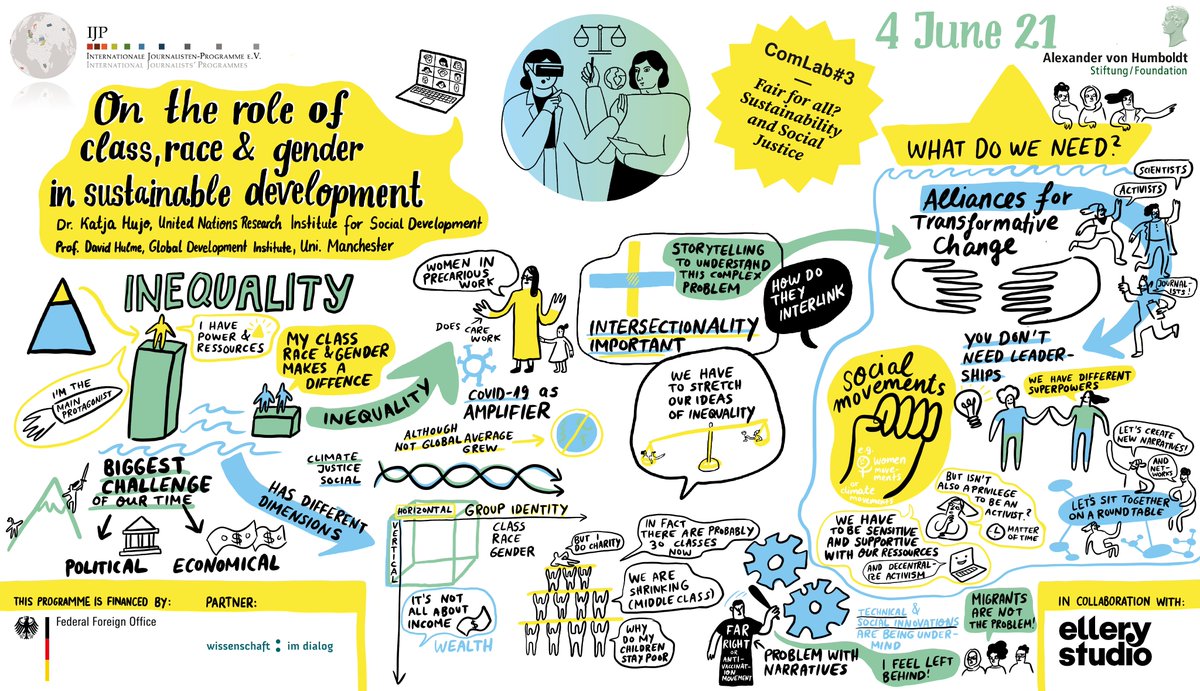 IJP
INTERNATIONALE JOURNALISTEN-PROGRAMME E.V.
INTERNATIONAL JOURNALISTS' PROGRAMMES
On the role of
class, race & gender
in sustainable development
Dr. Katja Hujo, United Nations Research Institute for Social Development
Prof. David Hulme, Global Development Institute, Uni. Manchester
ComLab#3
—
Fair for all?
Sustainability
and Social
Justice
4 June 21
Alexander von Humboldt
Stiftung/Foundation
INEQUALITY
I'M THE
MAIN
PROTAGONIST
I HAVE
POWER &
RESSOURCES
MY CLASS
RACE & GENDER
MAKES A
DIFFENCE
INEQUALITY
WOMEN IN
PRECARIOUS
WORK
DOES CARE
WORK
COVID-19 AS
AMPLIFIER
ALTHOUGH
NOT GLOBAL AVERAGE
GREW
CLIMATE
JUSTICE
SOCIAL
BIGGEST
CHALLENGE
OF OUR TIME
POLITICAL
ECONOMICAL
HAS DIFFERENT
DIMENSIONS
HORIZONTAL
GROUP IDENTITY
VERTICAL
CLASS
RACE
GENDER
IT'S NOT
ALL ABOUT
INCOME
WEALTH
STORYTELLING
TO UNDERSTAND
THIS COMPLEX
PROBLEM
INTERSECTIONALITY
IMPORTANT
HOW DO
THEY
INTERLINK
WE HAVE
TO STRETCH
OUR IDEAS
OF INEQUALITY
BUT I
DO CHARITY
IN FACT
THERE ARE PROBABLY
30 CLASSES
NOW
WE ARE
SHRINKING
(MIDDLE CLASS)
WHY
DO MY
CHILDREN
STAY POOR
FAR
RIGHT
OR
ANTI-
VACCINATION
MOVEMENT
PROBLEM WITH
NARRATIVES
TECHNICAL &
SOCIAL INNOVATIONS
ARE BEING UNDER-
MIND
I FEEL LEFT
BEHIND!
MIGRANTS
ARE NOT
THE PROBLEM!
WHAT DO WE NEED?
Alliances for
Transformative
Change
SCIENTISTS
ACTIVISTS
JOURNAL-
ISTS!
YOU DON'T
NEED LEADER-
SHIPS
WE HAVE DIFFERENT
SUPERPOWERS
Social
movements
e.g.
women
move-
ments
or
climate movement
WE HAVE
TO BE SENSITIVE
AND SUPPORTIVE
WITH OUR RESSOURCES
AND DECENTRAL-
IZE ACTIVISM
BUT ISN'T
ALSO A PRIVILEGE
TO BE AN
ACTIVIST?
MATTER
OF TIME
LET'S CREATE
NEW NARRATIVES!
AND
NET-
WORKS
LET'S SIT TOGETHER
ON A ROUND TABLE
THIS PROGRAMME IS FINANCED BY:
Federal Foreign Office
PARTNER:
wissenschaft : im dialog
IN COLLABORATION WITH:
ellery
studio